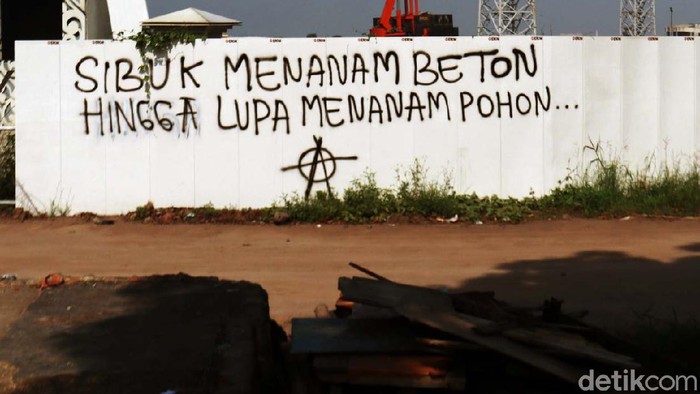 SIBUK MENANAM BETON
HINGGA LUPA MENANAM POHON...
detikcom